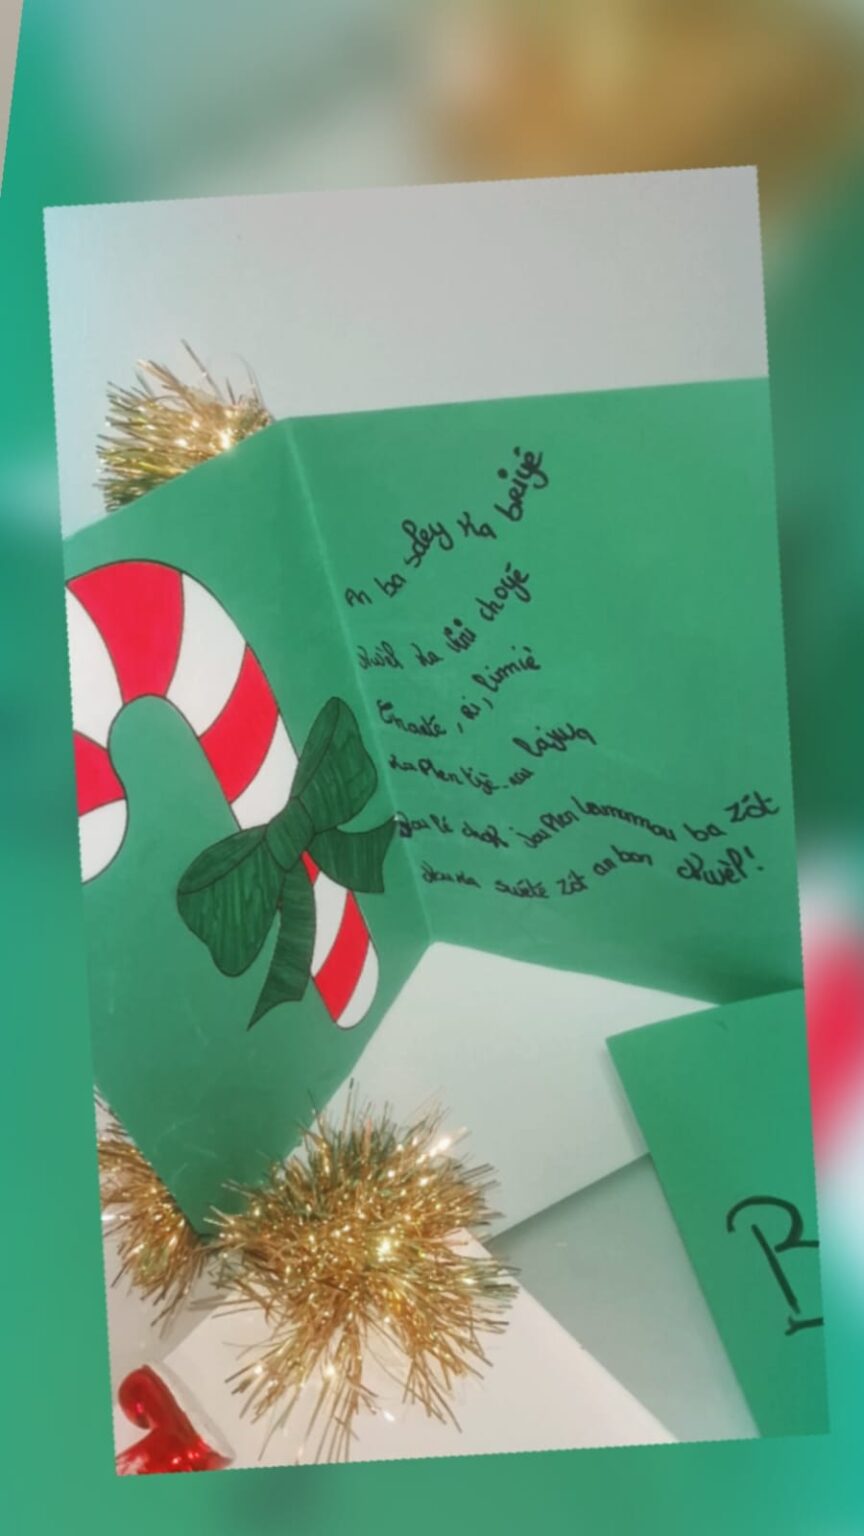 An ba soley ka briyé
chwèl ka vini choyé
Chanté, ri, limiè
Ka plen tjè nou lajwa
Jou lé chak jou plen lanmou ba zòt
Nou ka swété zòt an bon chwèl!